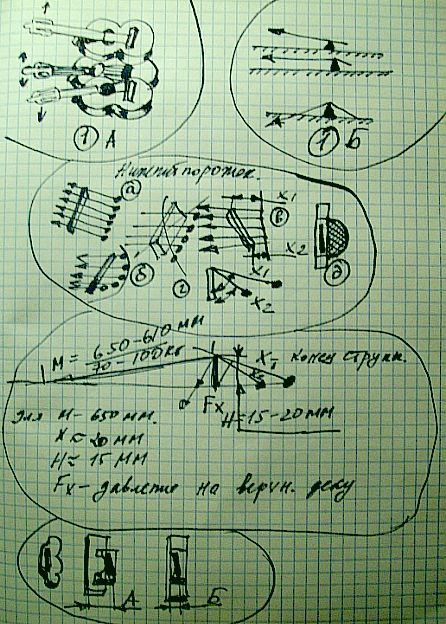 1 А
1 Б
Нижний порожек.
а
X1
в
X2
б
г
X1
X2
д
M = 650-610 мм
70-100 кг
X- конец струны.
Fx
H=15-20мм
для M- 650 мм.
X ≈ 20 мм
H ≈ 15 мм
Fx- давление на верхн. деку
А
Б